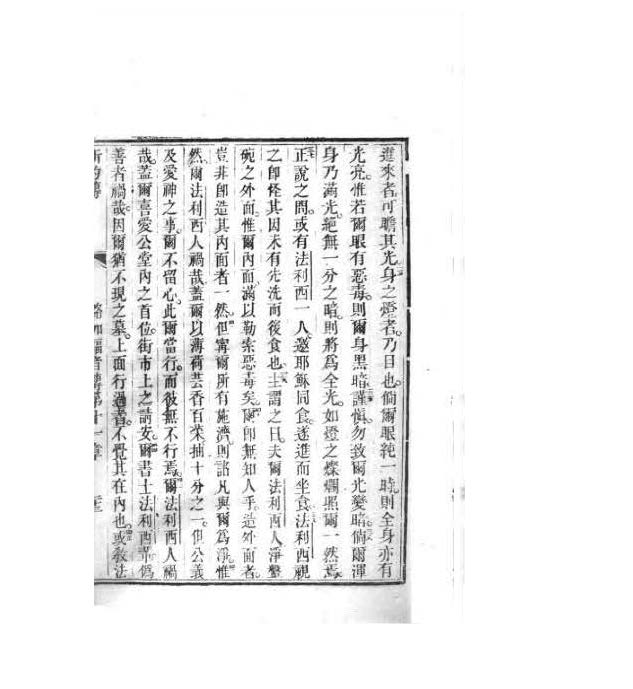 進來者可瞻其光身之燈者乃目也倘爾眼純一時則全身亦有
光亮惟若爾眼有惡毒則爾身黑暗謹慎勿致爾光變暗倘爾渾
身乃滿光絕無一分之暗則將爲全光如燈之燦爛照爾一然焉
正說之間或有法利西一人邀耶穌同食遂進而坐食法利西視
之卽怪其因未有先洗而後食也主謂之曰夫爾法利西人淨盤
碗之外面惟爾內面滿以勒索惡毒矣爾卽無知人乎造外面者
豈非卽造其內面者一然但寧爾所有施濟則諸凡與爾爲淨惟
然爾法利西人禍哉蓋爾以薄荷芸香百菜抽十分之一但公義
及愛神之事爾不留心此爾當行而彼無不行焉爾法利西人禍
哉蓋爾喜愛公堂內之首位街市上之請安爾書士法利西偽
善者禍哉因爾猶不現之墓上面行過者不覺其在內也或教法